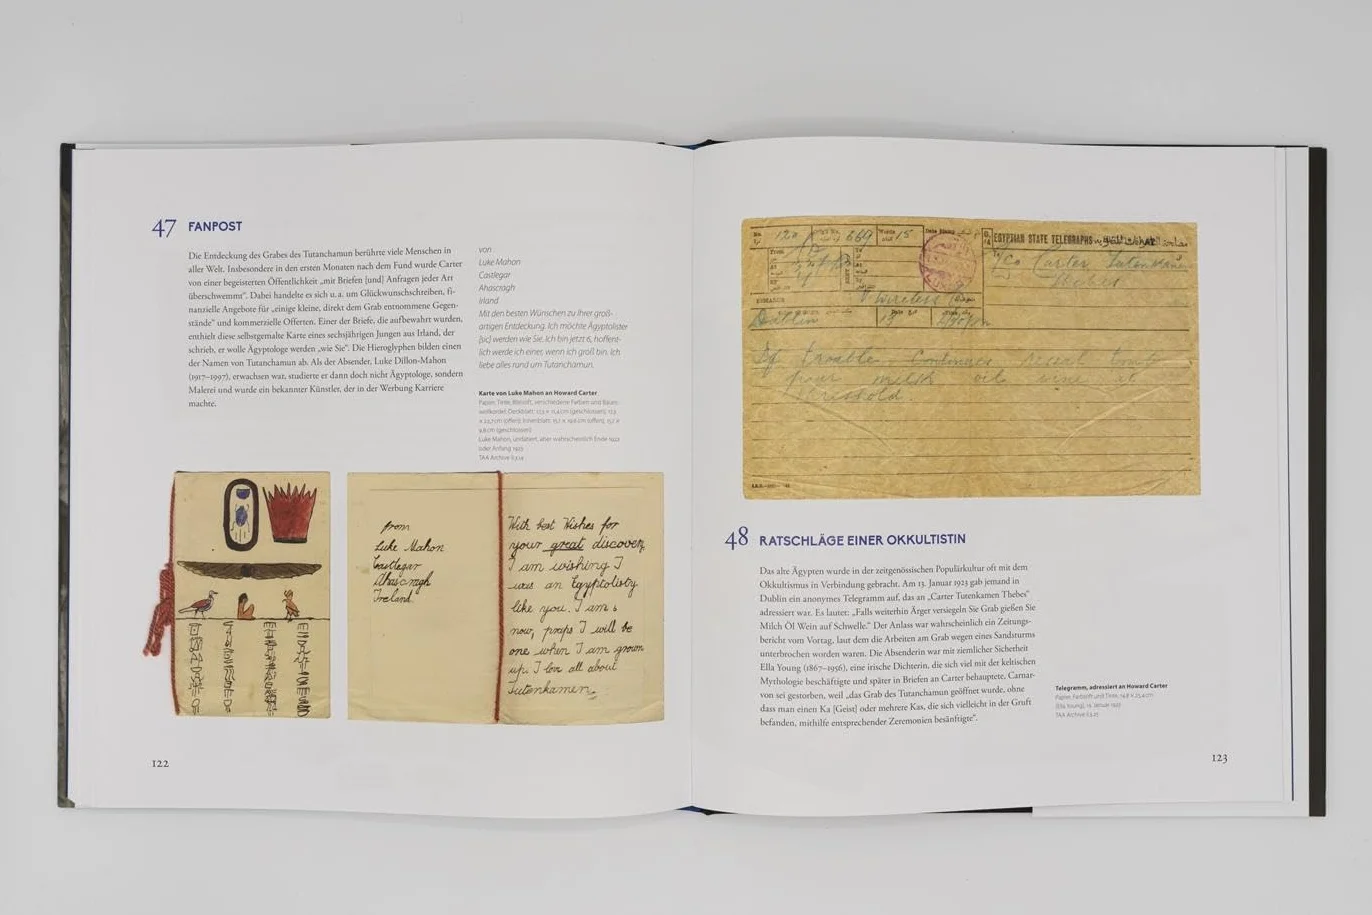 47 FANPOST
Die Entdeckung des Grabes des Tutanchamun berührte viele Menschen in
aller Welt. Insbesondere in den ersten Monaten nach dem Fund wurde Carter
von einer begeisterten Öffentlichkeit „mit Briefen [und] Anfragen jeder Art
überschwemmt“. Dabei handelte es sich u. a. um Glückwunschschreiben, fi-
nanzielle Angebote für „einige kleine, direkt dem Grab entnommene Gegen-
stände“ und kommerzielle Offerten. Einer der Briefe, die aufbewahrt wurden,
enthielt diese selbstgemalte Karte eines sechsjährigen Jungen aus Irland, der
schrieb, er wolle Ägyptologe werden „wie Sie“. Die Hieroglyphen bilden einen
der Namen von Tutanchamun ab. Als der Absender, Luke Dillon-Mahon
(1917–1997), erwachsen war, studierte er dann doch nicht Ägyptologe, sondern
Malerei und wurde ein bekannter Künstler, der in der Werbung Karriere
machte.
von
Luke Mahon
Castlegar
Ahascragh
Irland
Mit den besten Wünschen zu Ihrer groß-
artigen Entdeckung. Ich möchte Ägyptolist
[sic] werden wie Sie. Ich bin jetzt 6, hoffent-
lich werde ich einer, wenn ich groß bin. Ich
liebe alles rund um Tutanchamun.
Karte von Luke Mahon an Howard Carter
Luke Mahon, undatiert, aber wahrscheinlich Ende 1922
oder Anfang 1923
TAA Archive
from
Luke Mahon
Castlegar
Ahascragh
Ireland
With best Wishes for
your great discovery
I am wishing I
was an Egyptolisty
like you. I am 6
now, praps I will be
one when I am grown
up. I love all about
Tutenkamen.
122
EGYPTIAN STATE TELEGRAPHS
Carter Tutenkamen
Thebes
Wireless
Dublin 13
If trouble continues reseal tomb
pour milk oil wine at
threshold
48 RATSCHLÄGE EINER OKKULTISTIN
Das alte Ägypten wurde in der zeitgenössischen Populärkultur oft mit dem
Okkultismus in Verbindung gebracht. Am 13. Januar 1923 gab jemand in
Dublin ein anonymes Telegramm auf, das an „Carter Tutenkamen Thebes“
adressiert war. Es lautet: „Falls weiterhin Ärger versiegeln Sie Grab gießen Sie
Milch Öl Wein auf Schwelle.“ Der Anlass war wahrscheinlich ein Zeitungs-
bericht vom Vortag, laut dem die Arbeiten am Grab wegen eines Sandsturms
unterbrochen worden waren. Die Absenderin war mit ziemlicher Sicherheit
Ella Young (1867–1956), eine irische Dichterin, die sich viel mit der keltischen
Mythologie beschäftigte und später in Briefen an Carter behauptete, Carnar-
von sei gestorben, weil „das Grab des Tutanchamun geöffnet wurde, ohne
dass man einen Ka [Geist] oder mehrere Kas, die sich vielleicht in der Gruft
befanden, mithilfe entsprechender Zeremonien besänftigte“.
Telegramm, adressiert an Howard Carter
[Ella Young], 13. Januar 1923
TAA Archive
123